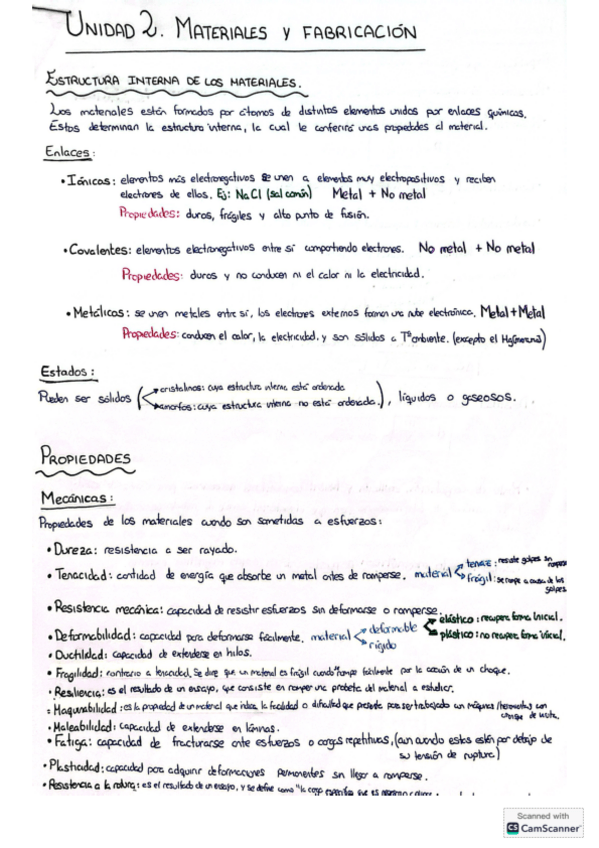 UNIDAD 2. MATERIALES Y FABRICACIÓN
ESTRUCTURA INTERNA DE LOS MATERIALES.
Los materiales están formados por átomos de distintos elementos unidos por enlaces químicos.
Estos determinan la estructura interna, la cual le conferirá unas propiedades al material.
Enlaces:
• Iónicos: elementos más electronegativos se unen a elementos muy electropositivos y reciben
electrones de ellos. Ej: NaCl (sal común) Metal + No metal
Propiedades: duros, frágiles y alto punto de fusión.
• Covalentes: elementos electronegativos entre sí compartiendo electrones. No metal + No metal
Propiedades: duros y no conducen ni el calor ni la electricidad.
• Metálicos: se unen metales entre sí, los electrones externos forman una nube electrónica. Metal + Metal
Propiedades: conducen el calor, la electricidad, y son sólidos a Tª ambiente. (excepto el Hg(mercurio)
Estados:
Pueden ser sólidos ( cristalinos: cuya estructura interna está ordenada
amorfos: cuya estructura interna no está ordenada. ), líquidos o gaseosos.
PROPIEDADES
Mecánicas:
Propiedades de los materiales cuando son sometidas a esfuerzos:
• Dureza: resistencia a ser rayado.
• Tenacidad: cantidad de energía que absorbe un metal antes de romperse. material tenaz: resiste golpes sin romperse
frágil: se rompe a causa de los golpes
• Resistencia mecánica: capacidad de resistir esfuerzos sin deformarse o romperse.
elástico: recupera forma inicial.
• Deformabilidad: capacidad para deformarse fácilmente. material deformable
plástico: no recupera forma inicial.
rígido
• Ductilidad: capacidad de extenderse en hilos.
• Fragilidad: contrario a tenacidad. Se dice que un material es frágil cuando rompe fácilmente por la acción de un choque.
• Resiliencia: es el resultado de un ensayo, que consiste en romper una probeta del material a estudiar.
• Maquinabilidad: es la propiedad de un material que indica la facilidad o dificultad que presenta para ser trabajado con máquinas herramientas con
• Maleabilidad: capacidad de extenderse en láminas.
• Fatiga: capacidad de fracturarse ante esfuerzos o cargas repetitivas, (aun cuando estas estén por debajo de
su tensión de ruptura)
• Plasticidad: capacidad para adquirir deformaciones permanentes sin llegar a romperse.
• Resistencia a la rotura: es el resultado de un ensayo, y se define como "la carga
Scanned with
CS CamScanner